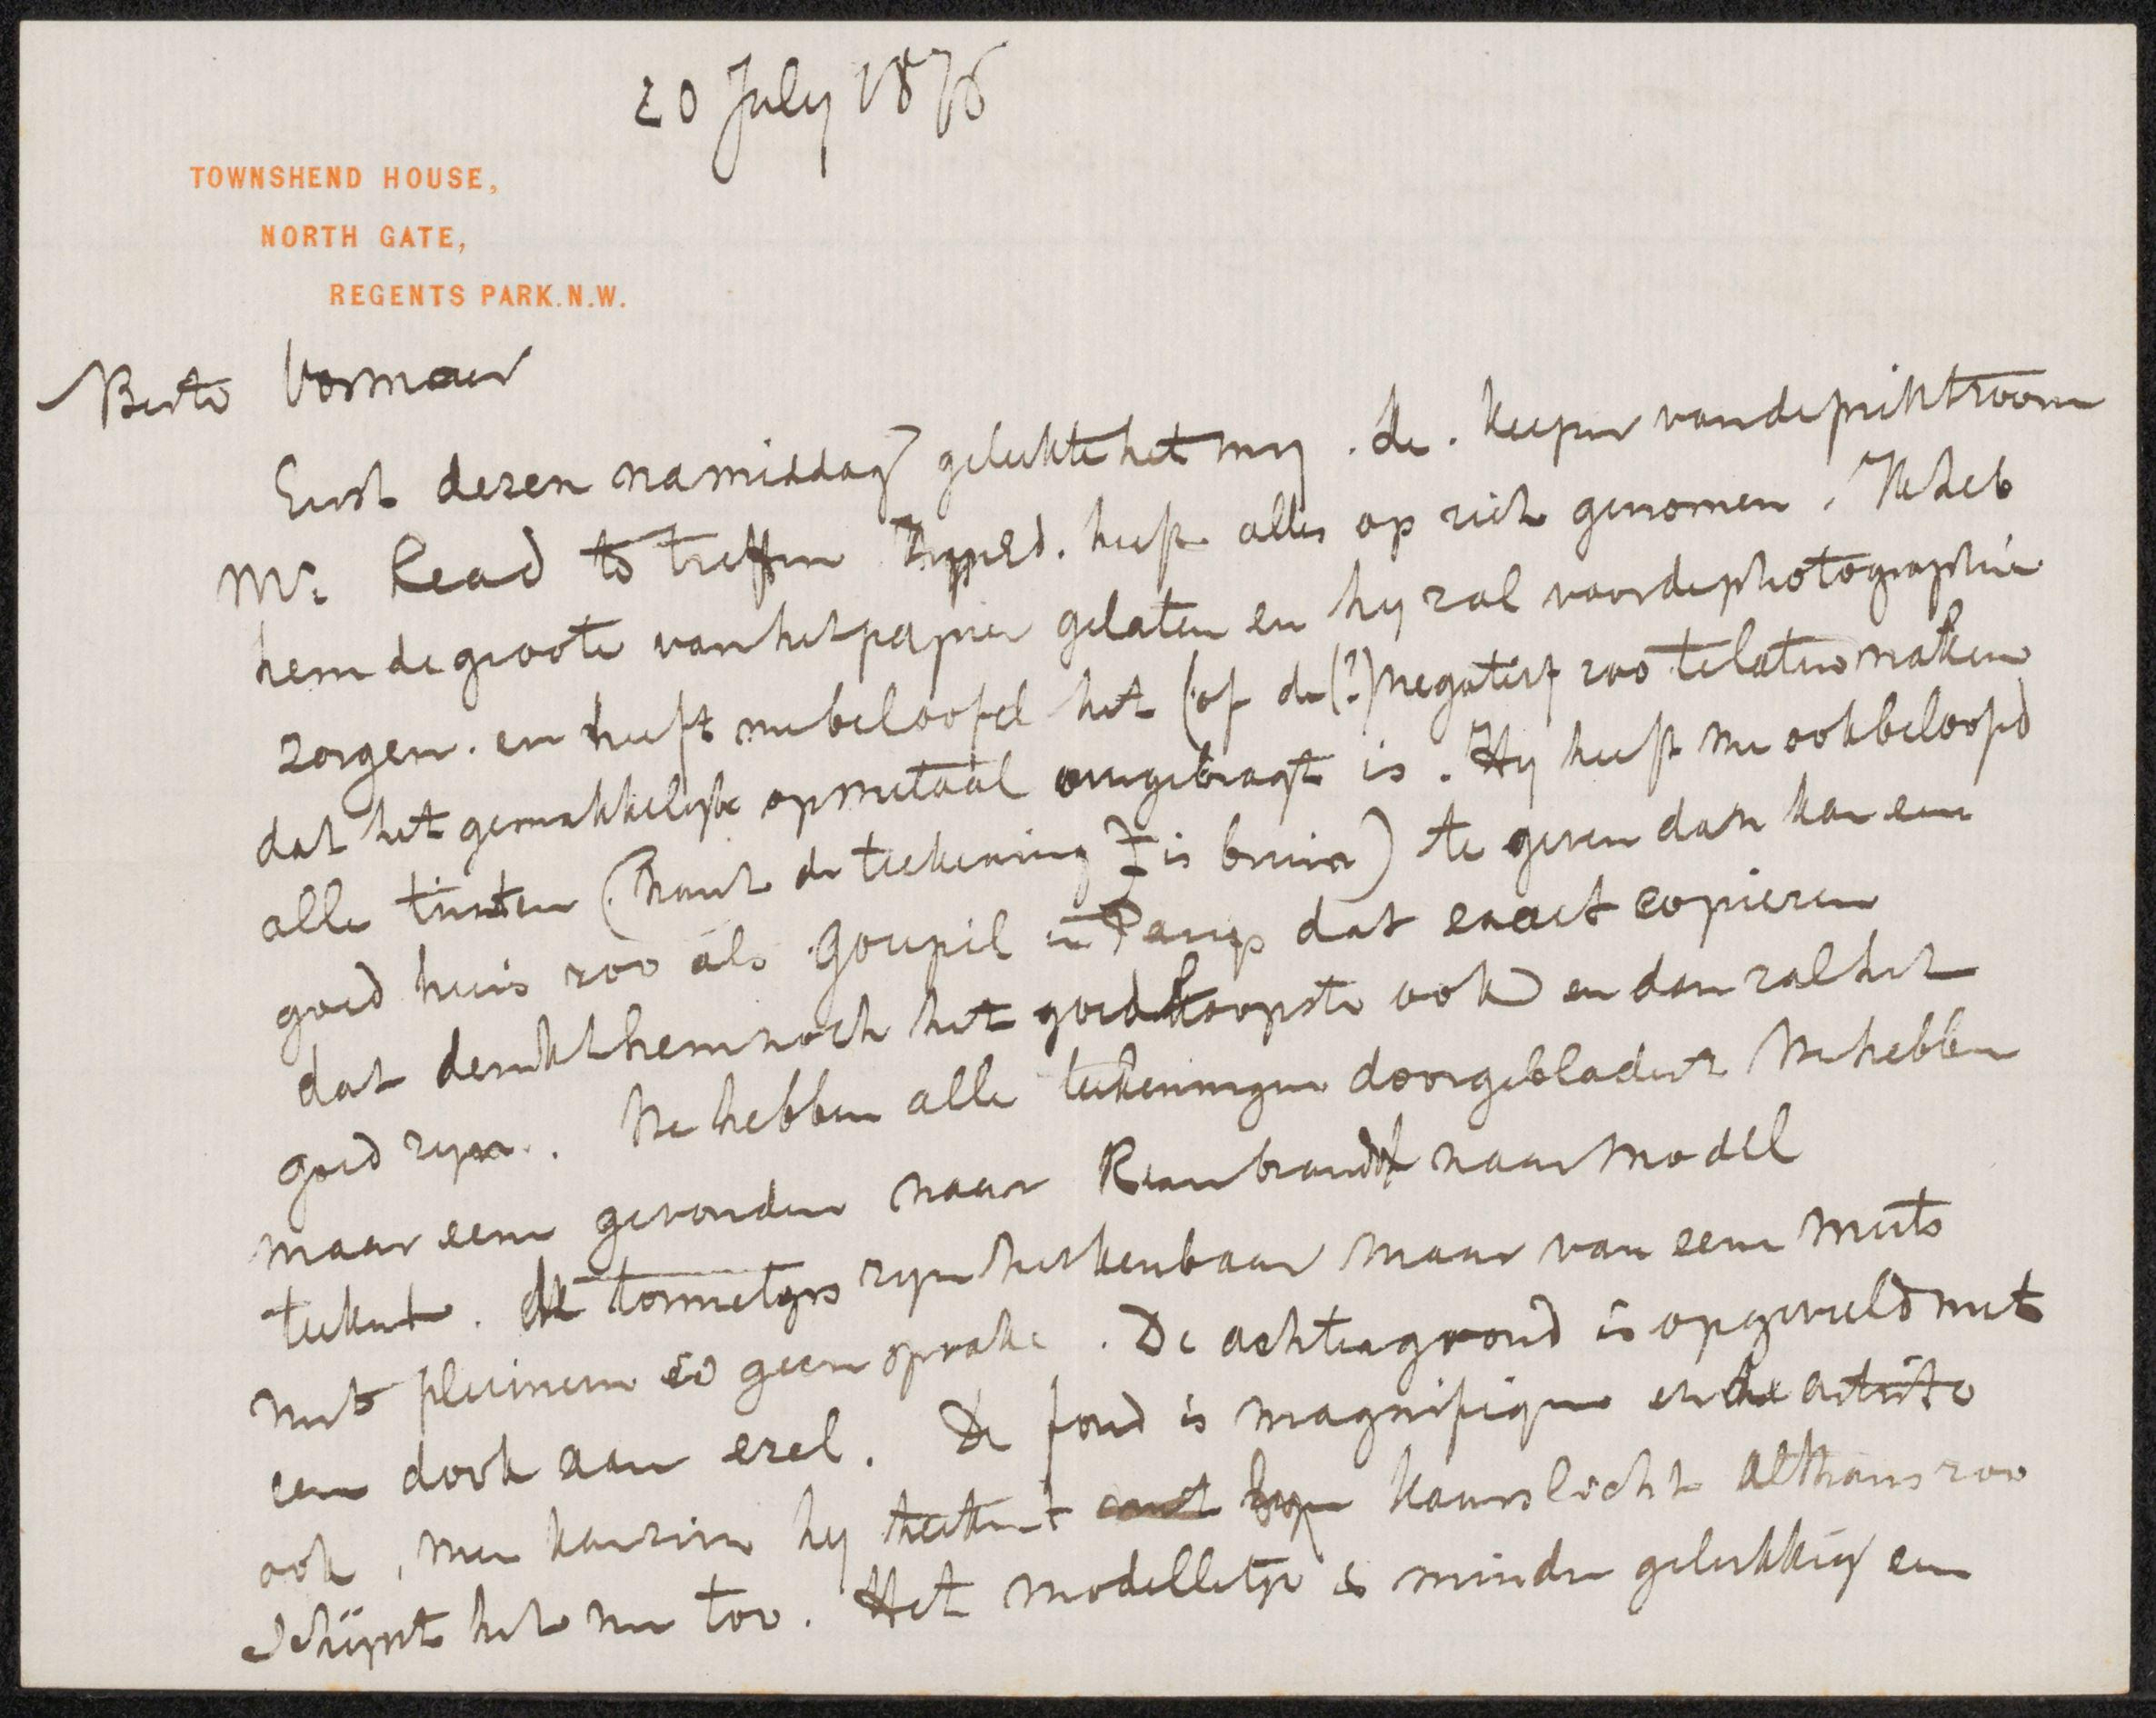 20 July 1876
TOWNSHEND HOUSE,
NORTH GATE,
REGENTS PARK.N.W.
Beste Vosmaer
Eerst dezen namiddag gelukte het my . de . Keeper van de printroom
Mr. Read te treffen ZynEd. heeft alles op zich genomen . Ik heb
hem de groote van het papier gelaten en hy zal voor de photographie
zorgen . en heeft me beloofd het (of de (?) negatief zoo te laten maken
dat het gemakkelyk op metaal overgebragt is . Hy heeft me ook beloofd
alle tinten (want de teekening is bruin) te geven dan kan een
goed huis zoo als Goupil in Parys dat exact copieren
dat denkt hem noch het goedkoopste ook en dan zal het
goed zyn . We hebben alle teekeningen doorgebladert We hebben
maar eene gevonden waar Rembrandt naar model
teekent . de tornetjes zyn herkenbaar maar van eene muts
met pluimen is geen sprake . De achtergrond is opgevuld met
een doek aan ezel . De fond is magnifique en de artiste
ook , men kan zien hy teekent by kaarslicht althans zoo
schijnt het me toe . Het modelletje is minder gelukkig en